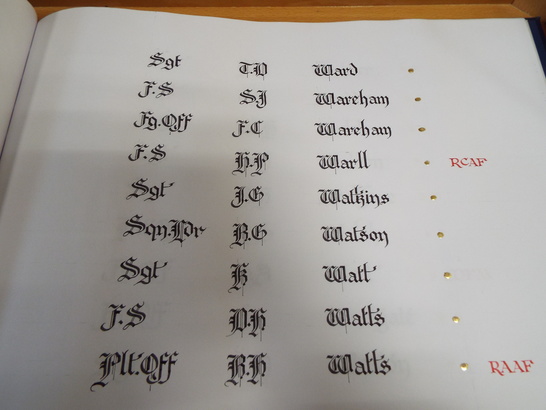 Sgt T.D Ward
F.S S.J Wareham
Fg.Off F.C Wareham
F.S H.P Warll RCAF
Sgt J.G Watkins
Sqn.Ldr B.G Watson
Sgt K Watt
F.S D.H Watts
Plt.Off B.H Watts RAAF